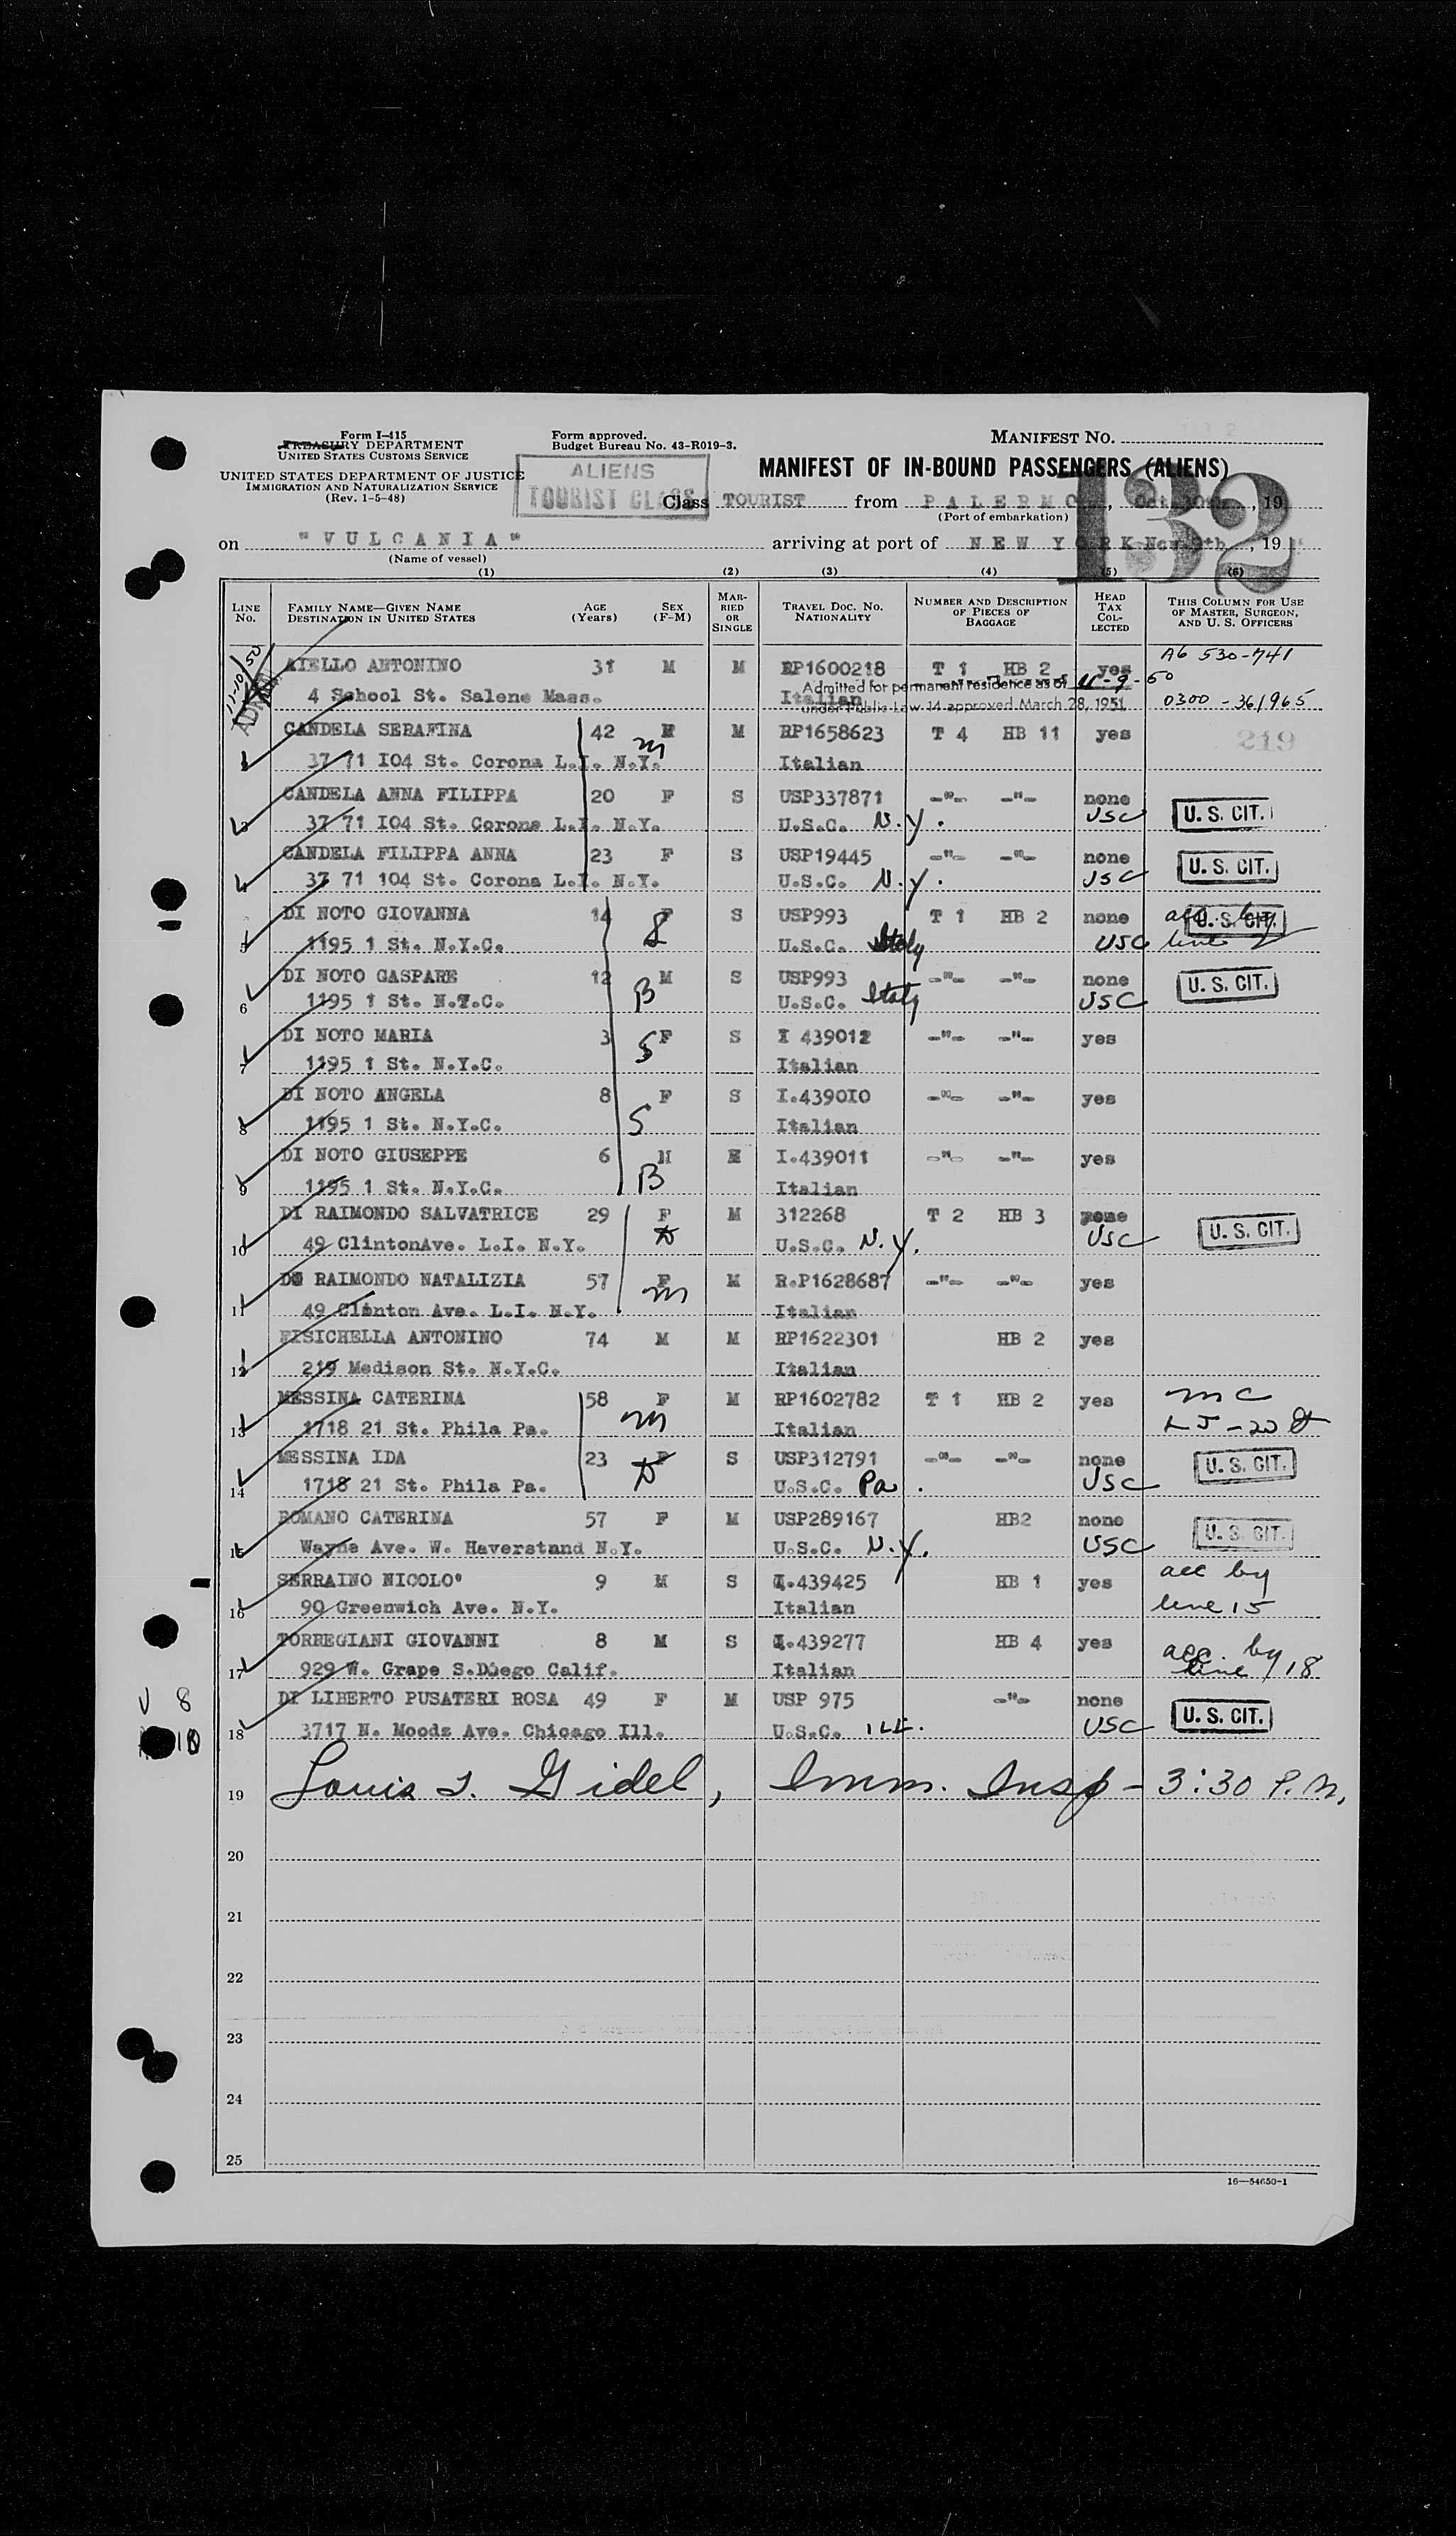 Form I-415
TREASURY DEPARTMENT
UNITED STATES CUSTOMS SERVICE
UNITED STATES DEPARTMENT OF JUSTICE
IMMIGRATION AND NATURALIZATION SERVICE
(Rev. 1-5-48)
Form approved.
Budget Bureau No. 43-R019-3.
ALIENS
TOURIST CLASS
MANIFEST NO.
132
MANIFEST OF IN-BOUND PASSENGERS (ALIENS)
Class TOURIST from PALERMO, Oct. 30th, 19
(Port of embarkation)
on "VULCANIA" arriving at port of NEW YORK Nov. 9th, 19
(Name of vessel)
(1) (2) (3) (4) (5) (6)
LINE No. FAMILY NAME—GIVEN NAME DESTINATION IN UNITED STATES AGE (Years) SEX (F-M) MARRIED OR SINGLE TRAVEL DOC. No. NATIONALITY NUMBER AND DESCRIPTION OF PIECES OF BAGGAGE HEAD TAX COLLECTED THIS COLUMN FOR USE OF MASTER, SURGEON, AND U. S. OFFICERS
11-10/50 AIELLO ANTONINO 31 M M RP1600218 T 1 HB 2 yes A6 530-741
Admitted for permanent residence as of 11-9-50
4 School St. Salene Mass. Italian 0300-361965
under Public Law 14 approved March 28, 1951
CANDELA SERAFINA 42 M m M RP1658623 T 4 HB 11 yes 219
2 37 71 I04 St. Corona L.I. N.Y. Italian
CANDELA ANNA FILIPPA 20 F S USP337871 -"- -"- none
3 37 71 I04 St. Corona L.I. N.Y. U.S.C. N.Y. USC U. S. CIT.
CANDELA FILIPPA ANNA 23 F S USP19445 -"- -"- none
4 37 71 104 St. Corona L.I. N.Y. U.S.C. N.Y. USC U. S. CIT.
DI NOTO GIOVANNA 14 F S USP993 T 1 HB 2 none acc. by U. S. CIT.
5 1195 1 St. N.Y.C. U.S.C. Italy USC line 2
DI NOTO GASPARE 12 M S USP993 -"- -"- none
6 1195 1 St. N.Y.C. B U.S.C. Italy USC U. S. CIT.
DI NOTO MARIA 3 F S I 439012 -"- -"- yes
7 1195 1 St. N.Y.C. S Italian
DI NOTO ANGELA 8 F S I.439OIO -"- -"- yes
8 1195 1 St. N.Y.C. S Italian
DI NOTO GIUSEPPE 6 M I.439011 -"- -"- yes
9 1195 1 St. N.Y.C. B Italian
DI RAIMONDO SALVATRICE 29 F M 312268 T 2 HB 3 none
10 49 ClintonAve. L.I. N.Y. D U.S.C. N.Y. USC U. S. CIT.
DI RAIMONDO NATALIZIA 57 F M R.P1628687 -"- -"- yes
11 49 Clinton Ave. L.I. N.Y. m Italian
FISICHELLA ANTONINO 74 M M RP1622301 HB 2 yes
12 219 Medison St. N.Y.C. Italian
MESSINA CATERINA 58 F M RP1602782 T 1 HB 2 yes mc
13 1718 21 St. Phila Pa. m Italian
MESSINA IDA 23 F S USP312791 -"- -"- none
14 1718 21 St. Phila Pa. D U.S.C. Pa. USC U. S. CIT.
ROMANO CATERINA 57 F M USP289167 HB2 none
15 Wayne Ave. W. Haverstand N.Y. U.S.C. N.Y. USC U. S. CIT.
SERRAINO NICOLO' 9 M S I.439425 HB 1 yes acc by
16 90 Greenwich Ave. N.Y. Italian line 15
TORREGIANI GIOVANNI 8 M S I.439277 HB 4 yes acc. by
17 929 W. Grape S.Diego Calif. Italian line 18
DI LIBERTO PUSATERI ROSA 49 F M USP 975 -"- none
18 3717 N. Moodz Ave. Chicago Ill. U.S.C. ILL. USC U. S. CIT.
V 8
10
19 Louis I. Gidel, Imm. Insp - 3:30 P.M.
20
21
22
23
24
25
16—54650-1